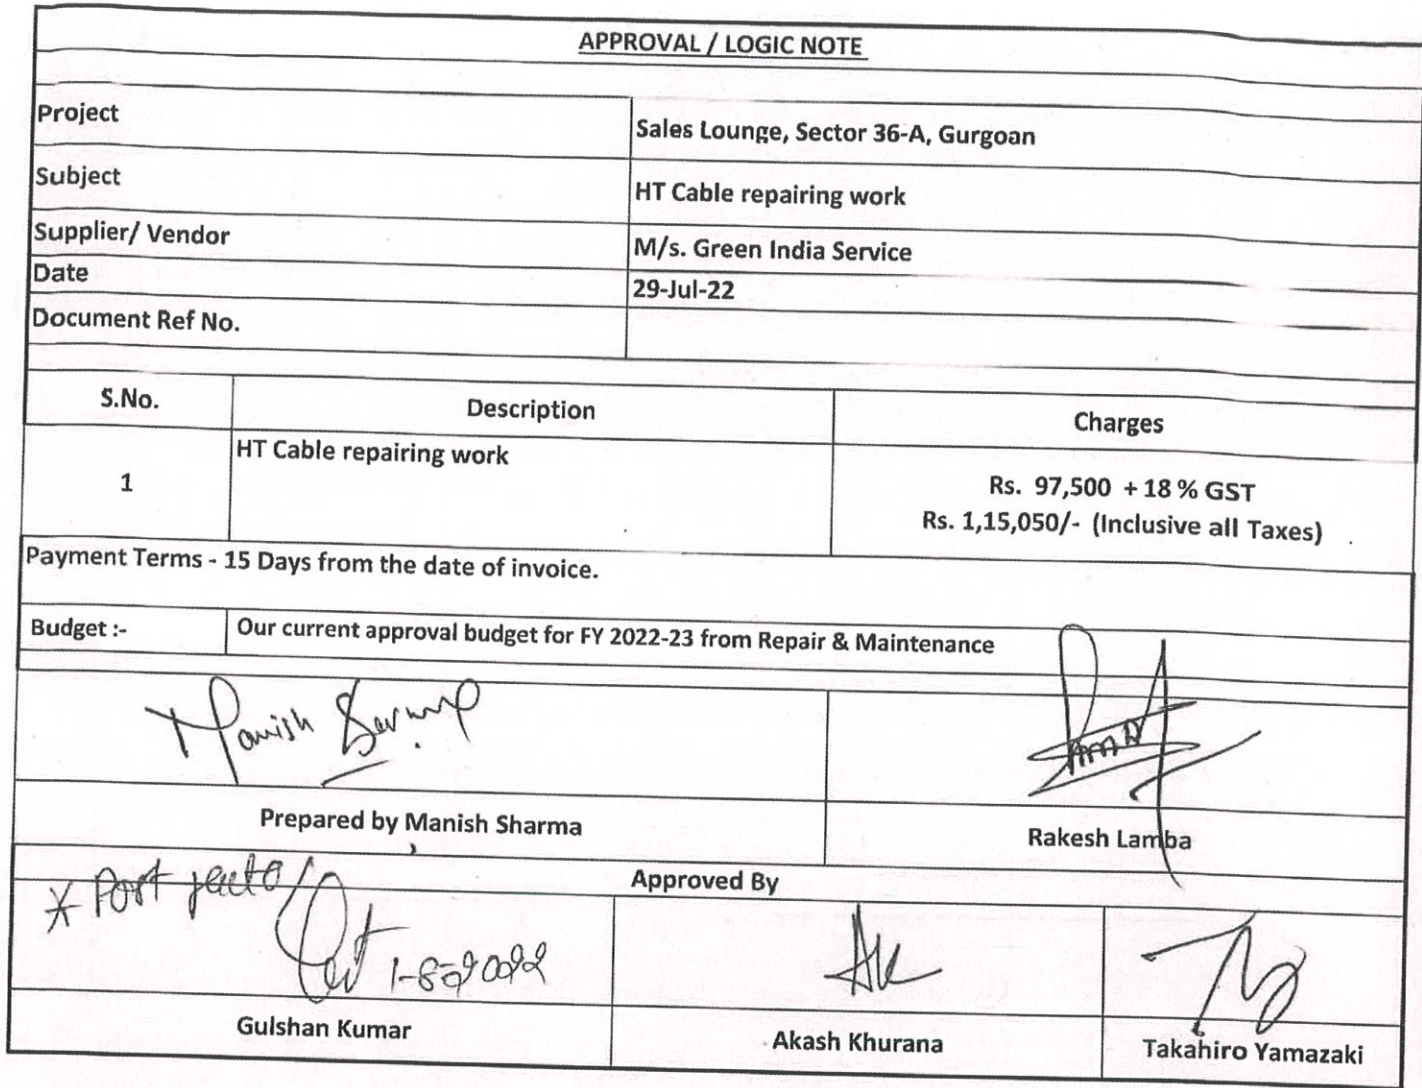 APPROVAL / LOGIC NOTE
Project
Sales Lounge, Sector 36-A, Gurgoan
Subject
HT Cable repairing work
Supplier/ Vendor
M/s. Green India Service
Date
29-Jul-22
Document Ref No.
S.No. Description Charges
1 HT Cable repairing work
Rs. 97,500 + 18 % GST
Rs. 1,15,050/- (Inclusive all Taxes)
Payment Terms - 15 Days from the date of invoice.
Budget :- Our current approval budget for FY 2022-23 from Repair & Maintenance
Manish Sharma
Prepared by Manish Sharma
Rakesh Lamba
Approved By
* Post facto
1-8-2022
Gulshan Kumar
Akash Khurana
Takahiro Yamazaki